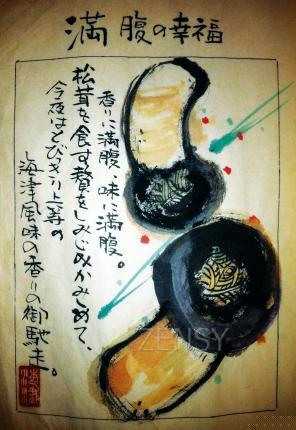 満腹の幸福
香りに満腹、味に満腹。
松茸を食す贅をしみじみかみしめて、
今夜はとびきり上等の
海津風味の香りの御馳走。
ZENSY